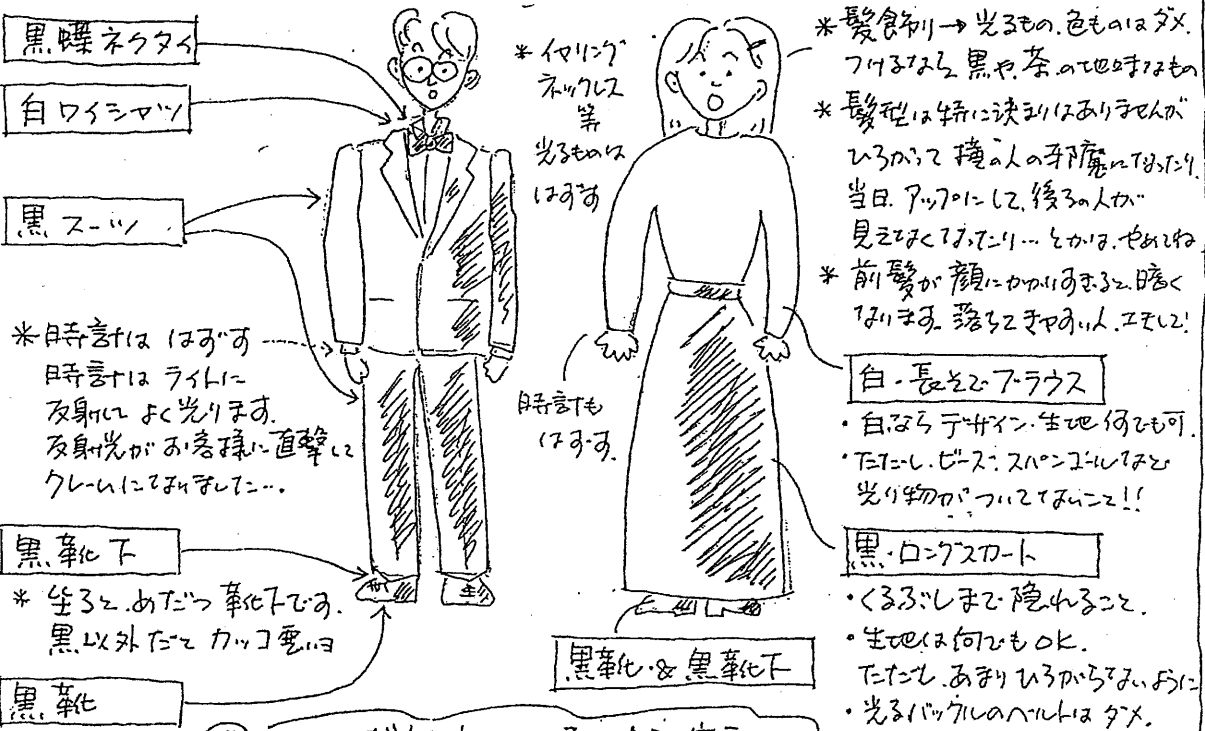 黒蝶ネクタイ
白ワイシャツ
黒スーツ
*時計は はずす
時計は ライトに
反射して よく光ります.
反射光が お客様に直撃して
クレームになりました….
黒靴下
* 坐ると、めだつ靴下です.
黒以外だと カッコ悪いヨ
黒靴
* イヤリング
ネックレス
等
光るものは
はずす
時計も
はずす.
黒靴&黒靴下
* 髪飾り→光るもの、色ものはダメ.
つけるなら、黒や、茶、の地味なもの
* 髪型は特に決まりはありませんが
ひろがって 横の人の邪魔になったり、
当日、アップにして、後ろの人が
見えなくなったり…とかは、やめてね
* 前髪が 顔にかかりすぎると、暗く
なります。落ちてきやすい人、工夫して!
白・長そでブラウス
・白ならデザイン・生地何でも可.
・ただし、ビーズ、スパンコールなど
光り物がついてないこと!!
黒・ロングスカート
・くるぶしまで隠れること.
・生地は何でもOK.
ただし、あまりひろがらないように
・光るバックルのベルトはダメ.